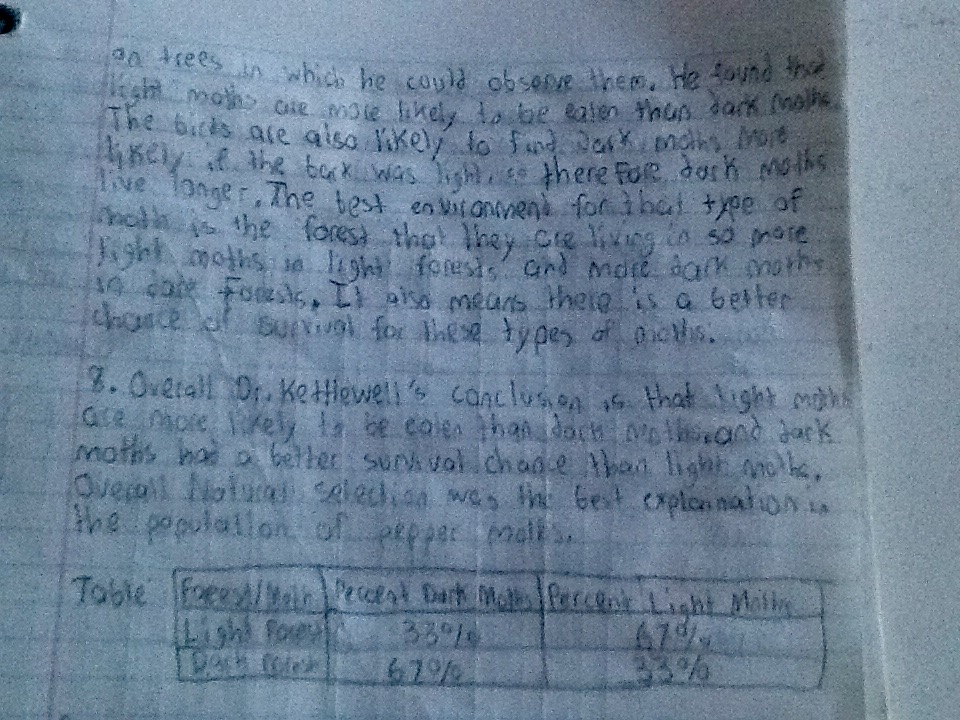 on trees in which he could observe them. He found that
light moths are more likely to be eaten than dark moths.
The birds are also likely to find dark moths more
likely if the bark was light, so therefore dark moths
live longer. The best environment for that type of
moth is the forest that they are living in so more
light moths in light forests and more dark moths
in dark forests. It also means there is a better
chance of survival for these types of moths.
8. Overall Dr. Kettlewell's conclusion is that light moths
are more likely to be eaten than dark moths and dark
moths had a better survival chance than light moths.
Overall Natural selection was the best explannation in
the population of pepper moths.
Table
Forest/Moth Percent Dark Moths Percent Light Moths
Light Forest 33% 67%
Dark Forest 67% 33%